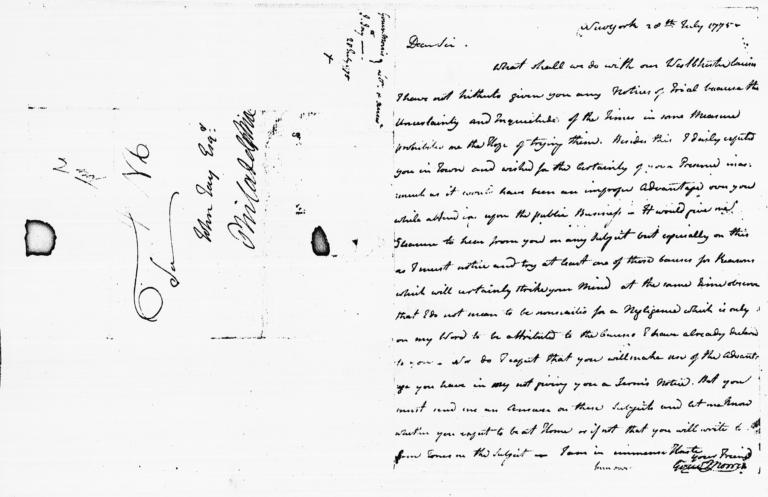 NewYork 28th July 1775
Dear Sir.
What shall we do with our WestChester Causes
I have not hitherto given you any Notices of Trial because the
Uncertainty and Inquietude of the Times in some Measure
prohibited me the Hope of trying them. Besides this I daily expected
you in Town and wished for the Certainty of your Presence inas-
much as it would have been an improper Advantage over you
while attending upon the public Business - It would give me
Pleasure to hear from you on any Subject but especially on this
as I must notice and try at least one of those Causes for Reasons
which will certainly strike your Mind at the same Time observe
that I do not mean to be nonsuited for a Negligence which is only
on my Word to be attributed to the Causes I have already declared
to you - Nor do I expect that you will make use of the Advant-
age you have in my not giving you a Term's Notice. But you
must send me an Answer on these Subjects and let me know
whether you expect to be at Home or if not that you will write to
some one on the Subject - I am in immense Haste
Your Friend
Gouv Morris
John Jay Esqr
Philadelphia
To
28 July 1775